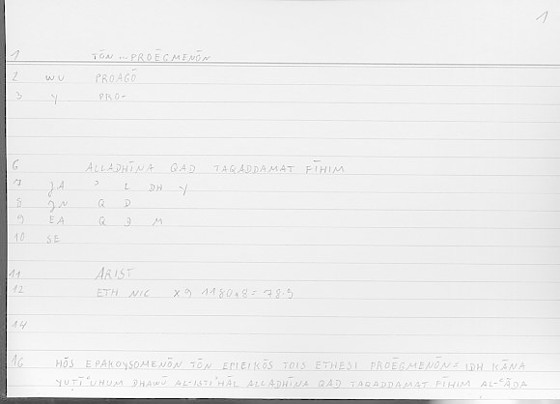 1
1 TŌN ... PROĒGMENŌN
2 WU PROAGŌ
3 Y PRO-
6 ALLADHĪNA QAD TAQADDAMAT FĪHIM
7 JA ʾ L DH Y
8 JN Q D
9 EA Q D M
10 SE
11 ARIST
12 ETH NIC X 9 1180A8 = 78.5
14
16 HŌS EPAKOYSOMENŌN TŌN EPIEIKŌS TOIS ETHESI PROĒGMENŌN = IDH KĀNA
YUṬĪʿUHUM DHAWŪ AL-ISTIʾHĀL ALLADHĪNA QAD TAQADDAMAT FĪHIM AL-ʿĀDA